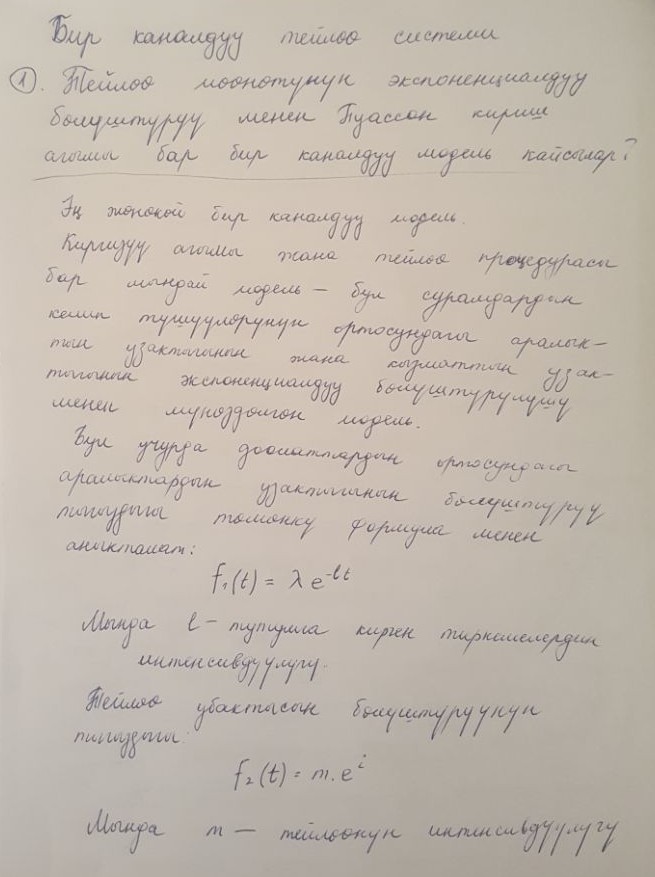 Бир каналдуу тейлоо системи
1. Тейлоо моонотунун экспоненциалдуу
болуштуруу менен Пуассон кириш
агымы бар бир каналдуу модель кайсылар?
Эң жонокой бир каналдуу модель.
Киргизуу агымы жана тейлоо процедурасы
бар мындай модель – бул сурамдардын
келип тушуулорунун ортосундагы аралык-
тын узактыгынын жана кызматтын узак-
тыгынын экспоненциалдуу болуштурулушу
менен муноздолгон модель.
Бул учурда дооматтардын ортосундагы
аралыктардын узактыгынын болуштуруу
тыгыздыгы томонку формула менен
аныкталат:
f₁(t) = λ e^-lt
Мында l – тутумга кирген тиркемелердин
интенсивдуулугу.
Тейлоо убактысын болуштуруунун
тыгыздыгы:
f₂(t) = m.e^i
Мында m – тейлоонун интенсивдуулугу